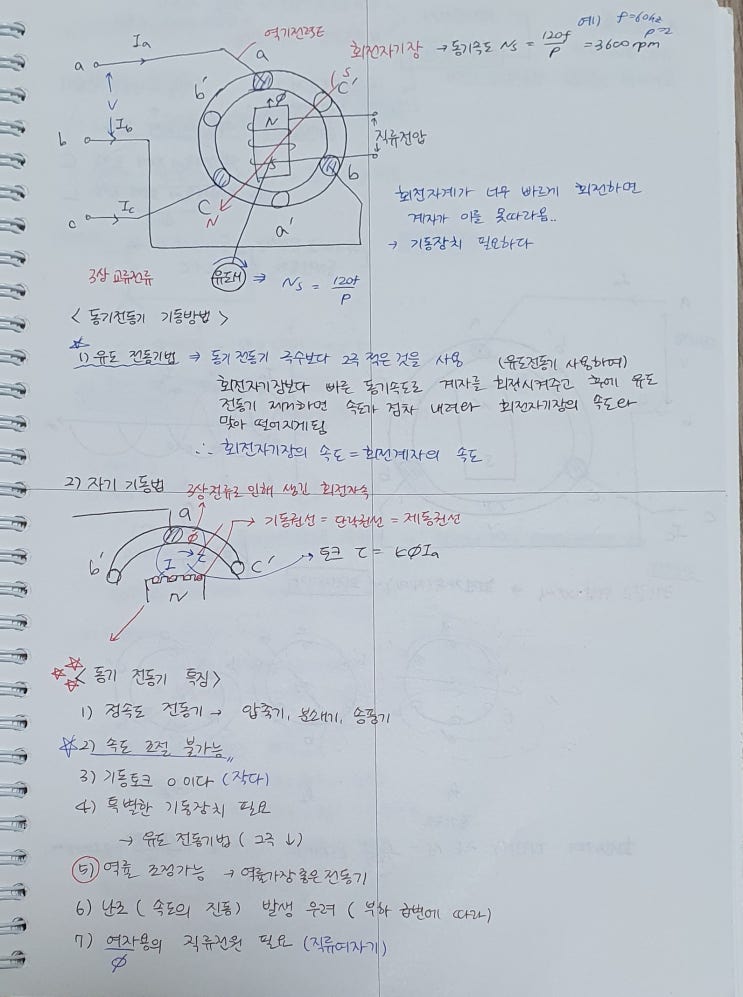 예) f=60hz
P=2
역기전력E
회전자기장 → 동기속도 Ns = 120f/P = 3600rpm
a Ia a
b' (S C'
V ↑ϕ
N 직류전압
b Ib S b
회전자계가 너무 빠르게 회전하면
계자가 이를 못따라옴..
→ 기동장치 필요하다
c Ic C N a'
3상 교류전류 유도M ⇒ Ns = 120f/P
< 동기전동기 기동방법 >
☆ 1) 유도 전동기법 ⇒ 동기전동기 극수보다 2극 적은 것을 사용 (유도전동기 사용하여)
회전자기장보다 빠른 동기속도로 계자를 회전시켜주고 후에 유도
전동기 제거하면 속도가 점차 내려와 회전자기장의 속도와
맞아 떨어지게됨
∴ 회전자기장의 속도 = 회전계자의 속도
2) 자기 기동법 3상전류로 인해 생긴 회전자속
a → 기동권선 = 단락권선 = 제동권선
b' ϕ I τ C' → 토크 τ = kϕIa
N
☆☆☆ < 동기 전동기 특징 >
1) 정속도 전동기 → 압축기, 분쇄기, 송풍기
☆ 2) 속도 조절 불가능
3) 기동토크 0 이다 (작다)
4) 특별한 기동장치 필요
→ 유도 전동기법 ( 2극 ↓ )
⑤) 역률 조정가능 → 역률가장좋은전동기
6) 난조 ( 속도의 진동 ) 발생 우려 ( 부하 급변에 따라 )
7) 여자용의 직류전원 필요 (직류여자기)
ϕ